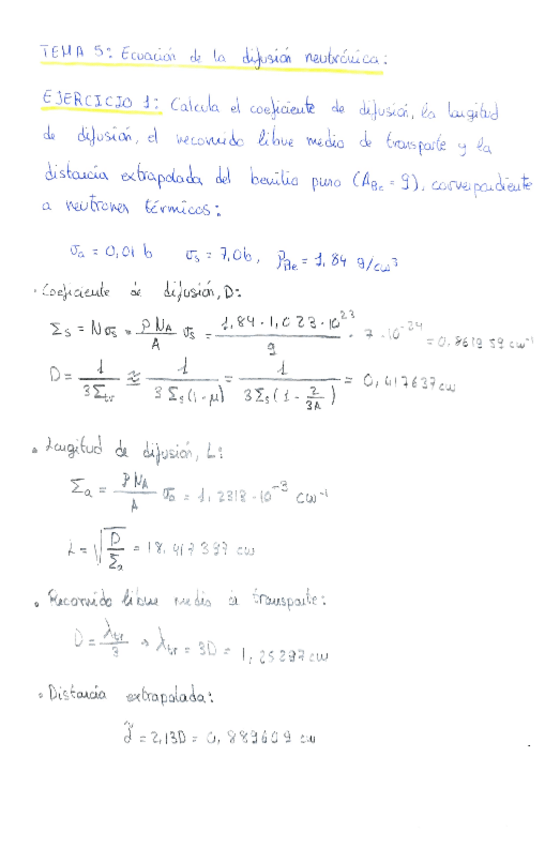 TEMA 5: Ecuación de la difusión neutrónica:
EJERCICIO 1: Calcula el coeficiente de difusión, la longitud
de difusión, el recorrido libre medio de transporte y la
distancia extrapolada del berilio puro (A_Be = 9), correspondiente
a neutrones térmicos:
σa = 0,01 b σs = 7,0b, ρBe = 1,84 g/cm³
· Coeficiente de difusión, D:
Σs = Nσs = ρNA/A σs = 1,84·1,023·10²³/9 · 7·10⁻²⁴ = 0.861959 cm⁻¹
D = 1/3Σtr ≈ 1/3Σs(1-μ) = 1/3Σs(1-2/3A) = 0,417637cm
· Longitud de difusión, L:
Σa = ρNA/A σa = 1,2318·10⁻³ cm⁻¹
L = √D/Σa = 18,417397 cm
· Recorrido libre medio de transporte:
D = λtr/3 → λtr = 3D = 1,25297cm
· Distancia extrapolada:
d̃ = 2,13D = 0,889609 cm